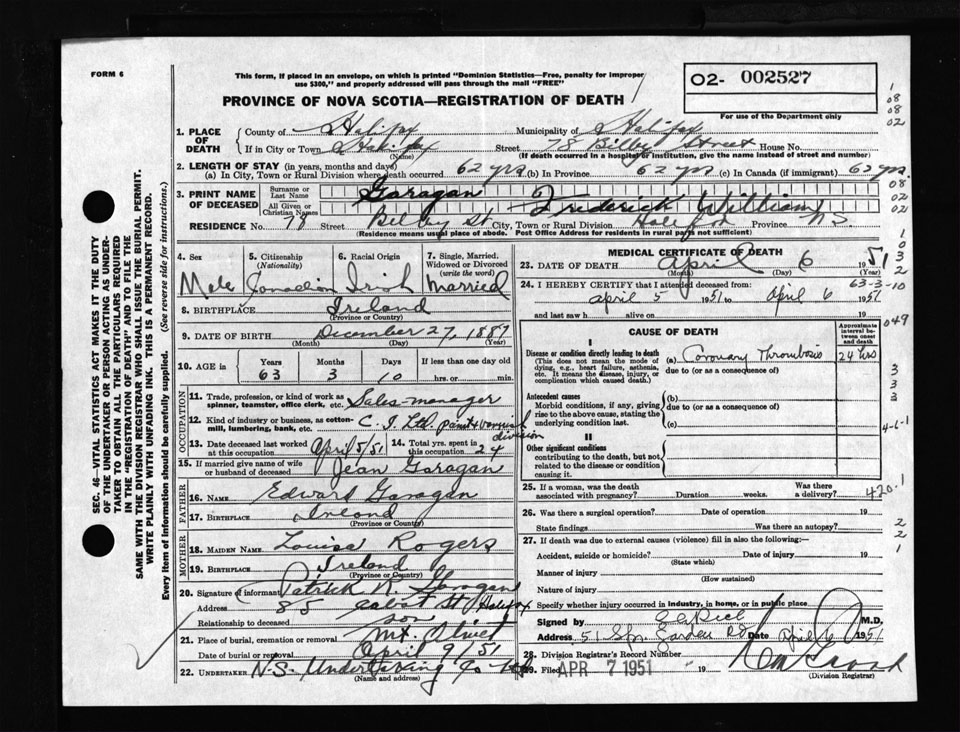 FORM 6
This form, if placed in an envelope, on which is printed "Dominion Statistics—Free, penalty for improper
use $300," and properly addressed will pass through the mail "FREE"
PROVINCE OF NOVA SCOTIA—REGISTRATION OF DEATH
02- 002527
For use of the Department only
1
08
08
02
1. PLACE OF DEATH { County of Halifax Municipality of Halifax
If in City or Town Halifax (Name) Street 78 Bilby Street House No.
(If death occurred in a hospital or institution, give the name instead of street and number)
2. LENGTH OF STAY (in years, months and days)
(a) In City, Town or Rural Division where death occurred 62 yrs (b) In Province 62 yrs (c) In Canada (if immigrant) 62 yrs.
3. PRINT NAME OF DECEASED { Surname or Last Name Garagan
All Given or Christian Names Frederick William
08
02
02
RESIDENCE No. 78 Street Bilby St. City, Town or Rural Division Halifax Province N.S.
(Residence means usual place of abode. Post Office Address for residents in rural parts not sufficient)
4. Sex Male
5. Citizenship (Nationality) Canadian
6. Racial Origin Irish
7. Single, Married, Widowed or Divorced (write the word) Married
8. BIRTHPLACE Ireland
(Province or Country)
9. DATE OF BIRTH December 27, 1887
(Month) (Day) (Year)
10. AGE Years 63 Months 3 Days 10 If less than one day old hrs. or min.
OCCUPATION
11. Trade, profession, or kind of work as spinner, teamster, office clerk, etc. Sales-manager
12. Kind of industry or business, as cotton-mill, lumbering, bank, etc. C.I. Ltd. paint & varnish division
13. Date deceased last worked at this occupation April 5/51 14. Total yrs. spent in this occupation 24
15. If married give name of wife or husband of deceased Jean Garagan
FATHER
16. NAME Edward Garagan
17. BIRTHPLACE Ireland
(Province or Country)
MOTHER
18. MAIDEN NAME Louise Rogers
19. BIRTHPLACE Ireland
(Province or Country)
20. Signature of informant Patrick R. Garagan
Address 85 Cabot St Halifax
Relationship to deceased son
21. Place of burial, cremation or removal Mt. Olivet
Date of burial or removal April 9/51
22. UNDERTAKER N.S. Undertaking Co Hfx
(Name and address)
MEDICAL CERTIFICATE OF DEATH
23. DATE OF DEATH April 6 1951
(Month) (Day) (Year)
24. I HEREBY CERTIFY that I attended deceased from:
april 5 1951 to April 6 1951
and last saw h alive on 19
CAUSE OF DEATH
Approximate interval between onset and death
I
Disease or condition directly leading to death
(This does not mean the mode of dying, e.g., heart failure, asthenia, etc. It means the disease, injury, or complication which caused death.)
(a) Coronary Thrombosis 24 hrs
due to (or as a consequence of)
Antecedent causes
Morbid conditions, if any, giving rise to the above cause, stating the underlying condition last.
(b)
due to (or as a consequence of)
(c)
II
Other significant conditions
contributing to the death, but not related to the disease or condition causing it.
25. If a woman, was the death associated with pregnancy? Duration weeks. Was there a delivery?
26. Was there a surgical operation? Date of operation 19
State findings Was there an autopsy?
27. If death was due to external causes (violence) fill in also the following:—
Accident, suicide or homicide? Date of injury 19
(State which)
Manner of injury
(How sustained)
Nature of injury
Specify whether injury occurred in industry, in home, or in public place
Signed by M.D.
Address 51 Spr. Garden Rd Date April 6 1951
28. Division Registrar's Record Number
29. Filed APR 7 1951 19
(Division Registrar)
1
0
3
2
63-3-10
049
3
3
3
4-6-1
420.1
2
2
1
SEC. 46—VITAL STATISTICS ACT MAKES IT THE DUTY
OF THE UNDERTAKER OR PERSON ACTING AS UNDER-
TAKER TO OBTAIN ALL THE PARTICULARS REQUIRED
IN THE "REGISTRATION OF DEATH" AND TO FILE THE
SAME WITH THE DIVISION REGISTRAR WHO SHALL ISSUE THE BURIAL PERMIT.
WRITE PLAINLY WITH UNFADING INK. THIS IS A PERMANENT RECORD.
Every item of information should be carefully supplied. (See reverse side for instructions.)